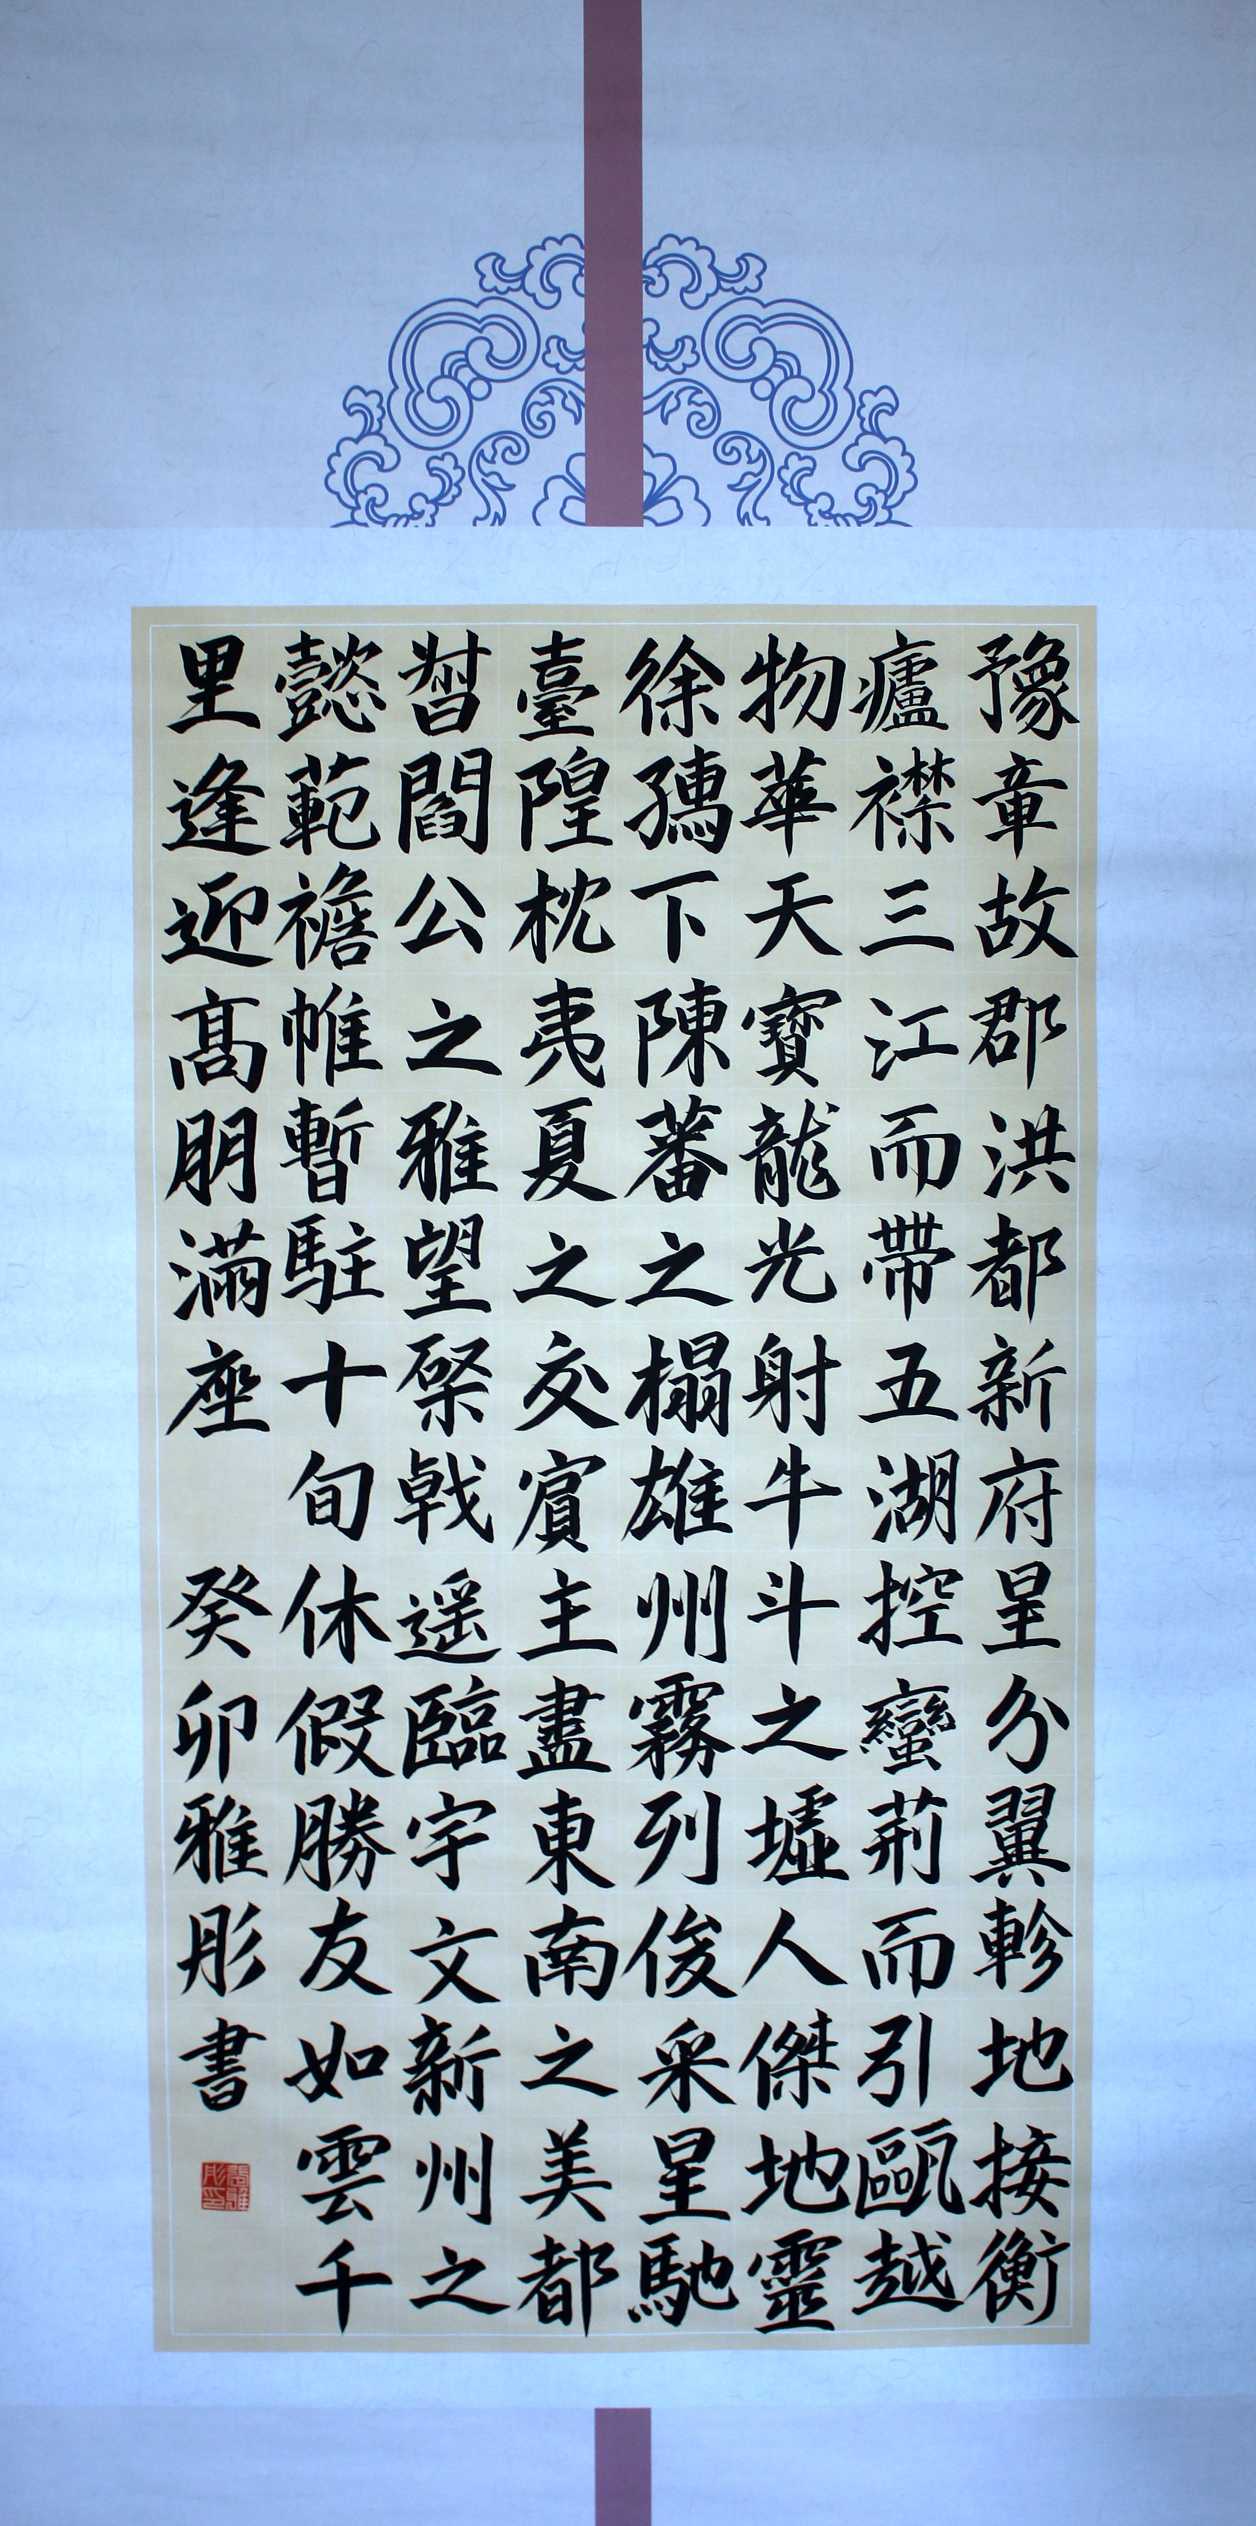 豫章故郡洪都新府星分翼軫地接衡
廬襟三江而帶五湖控蠻荊而引甌越
物華天寶龍光射牛斗之墟人傑地靈
徐孺下陳蕃之榻雄州霧列俊采星馳
臺隍枕夷夏之交賓主盡東南之美都
督閻公之雅望棨戟遥臨宇文新州之
懿範襜帷暫駐十旬休假勝友如雲千
里逢迎高朋滿座 癸卯雅彤書